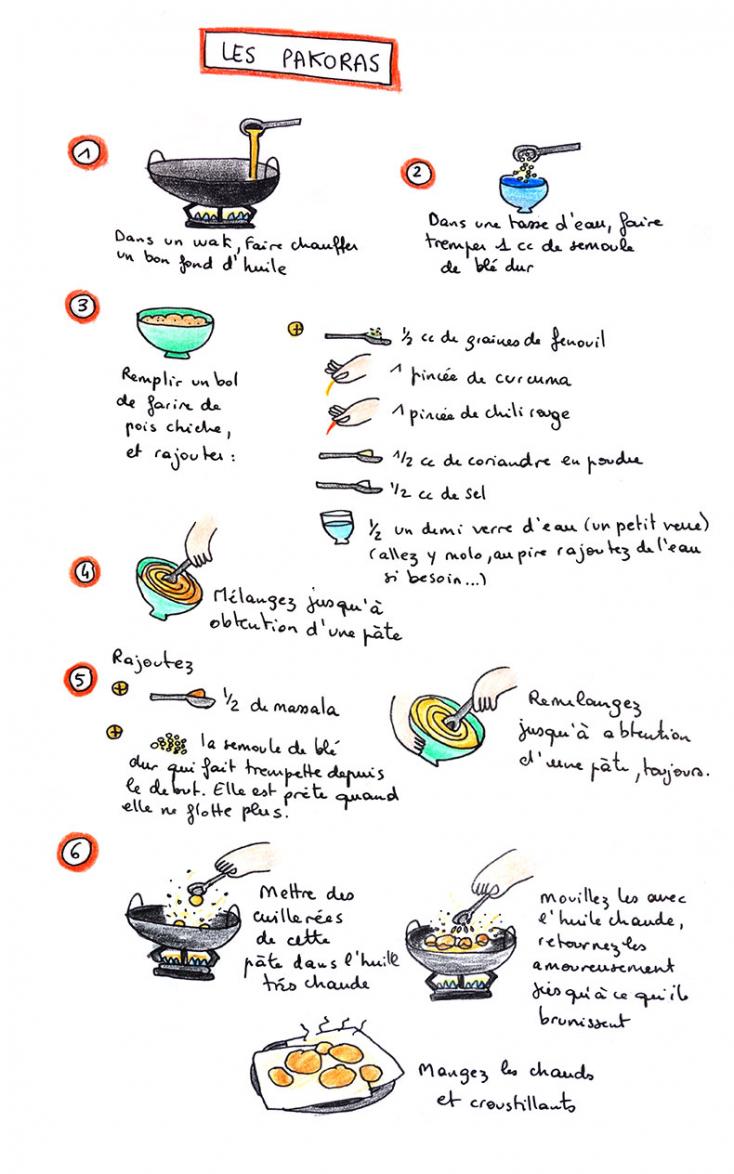 LES PAKORAS
1
Dans un wak, faire chauffer
un bon fond d'huile
2
Dans une tasse d'eau, faire
tremper 1 cc de semoule
de blé dur
3
Remplir un bol
de farire de
pois chiche,
et rajouter :
+ 1/2 cc de graines de fenouil
1 pincée de curcuma
1 pincée de chili rouge
1/2 cc de coriandre en poudre
1/2 cc de sel
1/2 un demi verre d'eau (un petit verre)
(allez y molo, au pire rajoutez de l'eau
si besoin...)
4
Mélangez jusqu'à
obtention d'une pâte
5
Rajoutez
+ 1/2 de massala
+ la semoule de blé
dur qui fait trempette depuis
le debut. Elle est prête quand
elle ne flotte plus.
Remelangez
jusqu'à obtention
d'une pâte, toujours.
6
Mettre des
cuillerées
de cette
pâte dans l'huile
très chaude
Mouillez les avec
l'huile chaude,
retournez les
amoureusement
jusqu'à ce qu'ils
brunissent
Mangez les chauds
et croustillants